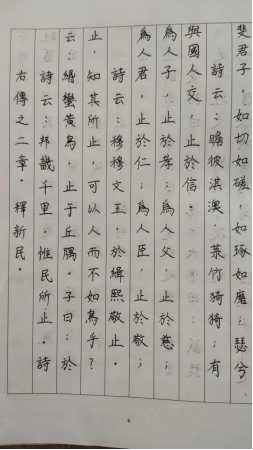 右傳之二章。釋新民。
詩云：邦畿千里，惟民所止。詩
云：緡蠻黃鳥，止于丘隅。子曰：於
止，知其所止，可以人而不如鳥乎？
詩云：穆穆文王，於緝熙敬止。
爲人君，止於仁；爲人臣，止於敬；
爲人子，止於孝；爲人父，止於慈；
與國人交，止於信。
詩云：瞻彼淇澳，菉竹猗猗；有
斐君子，如切如磋，如琢如磨；瑟兮